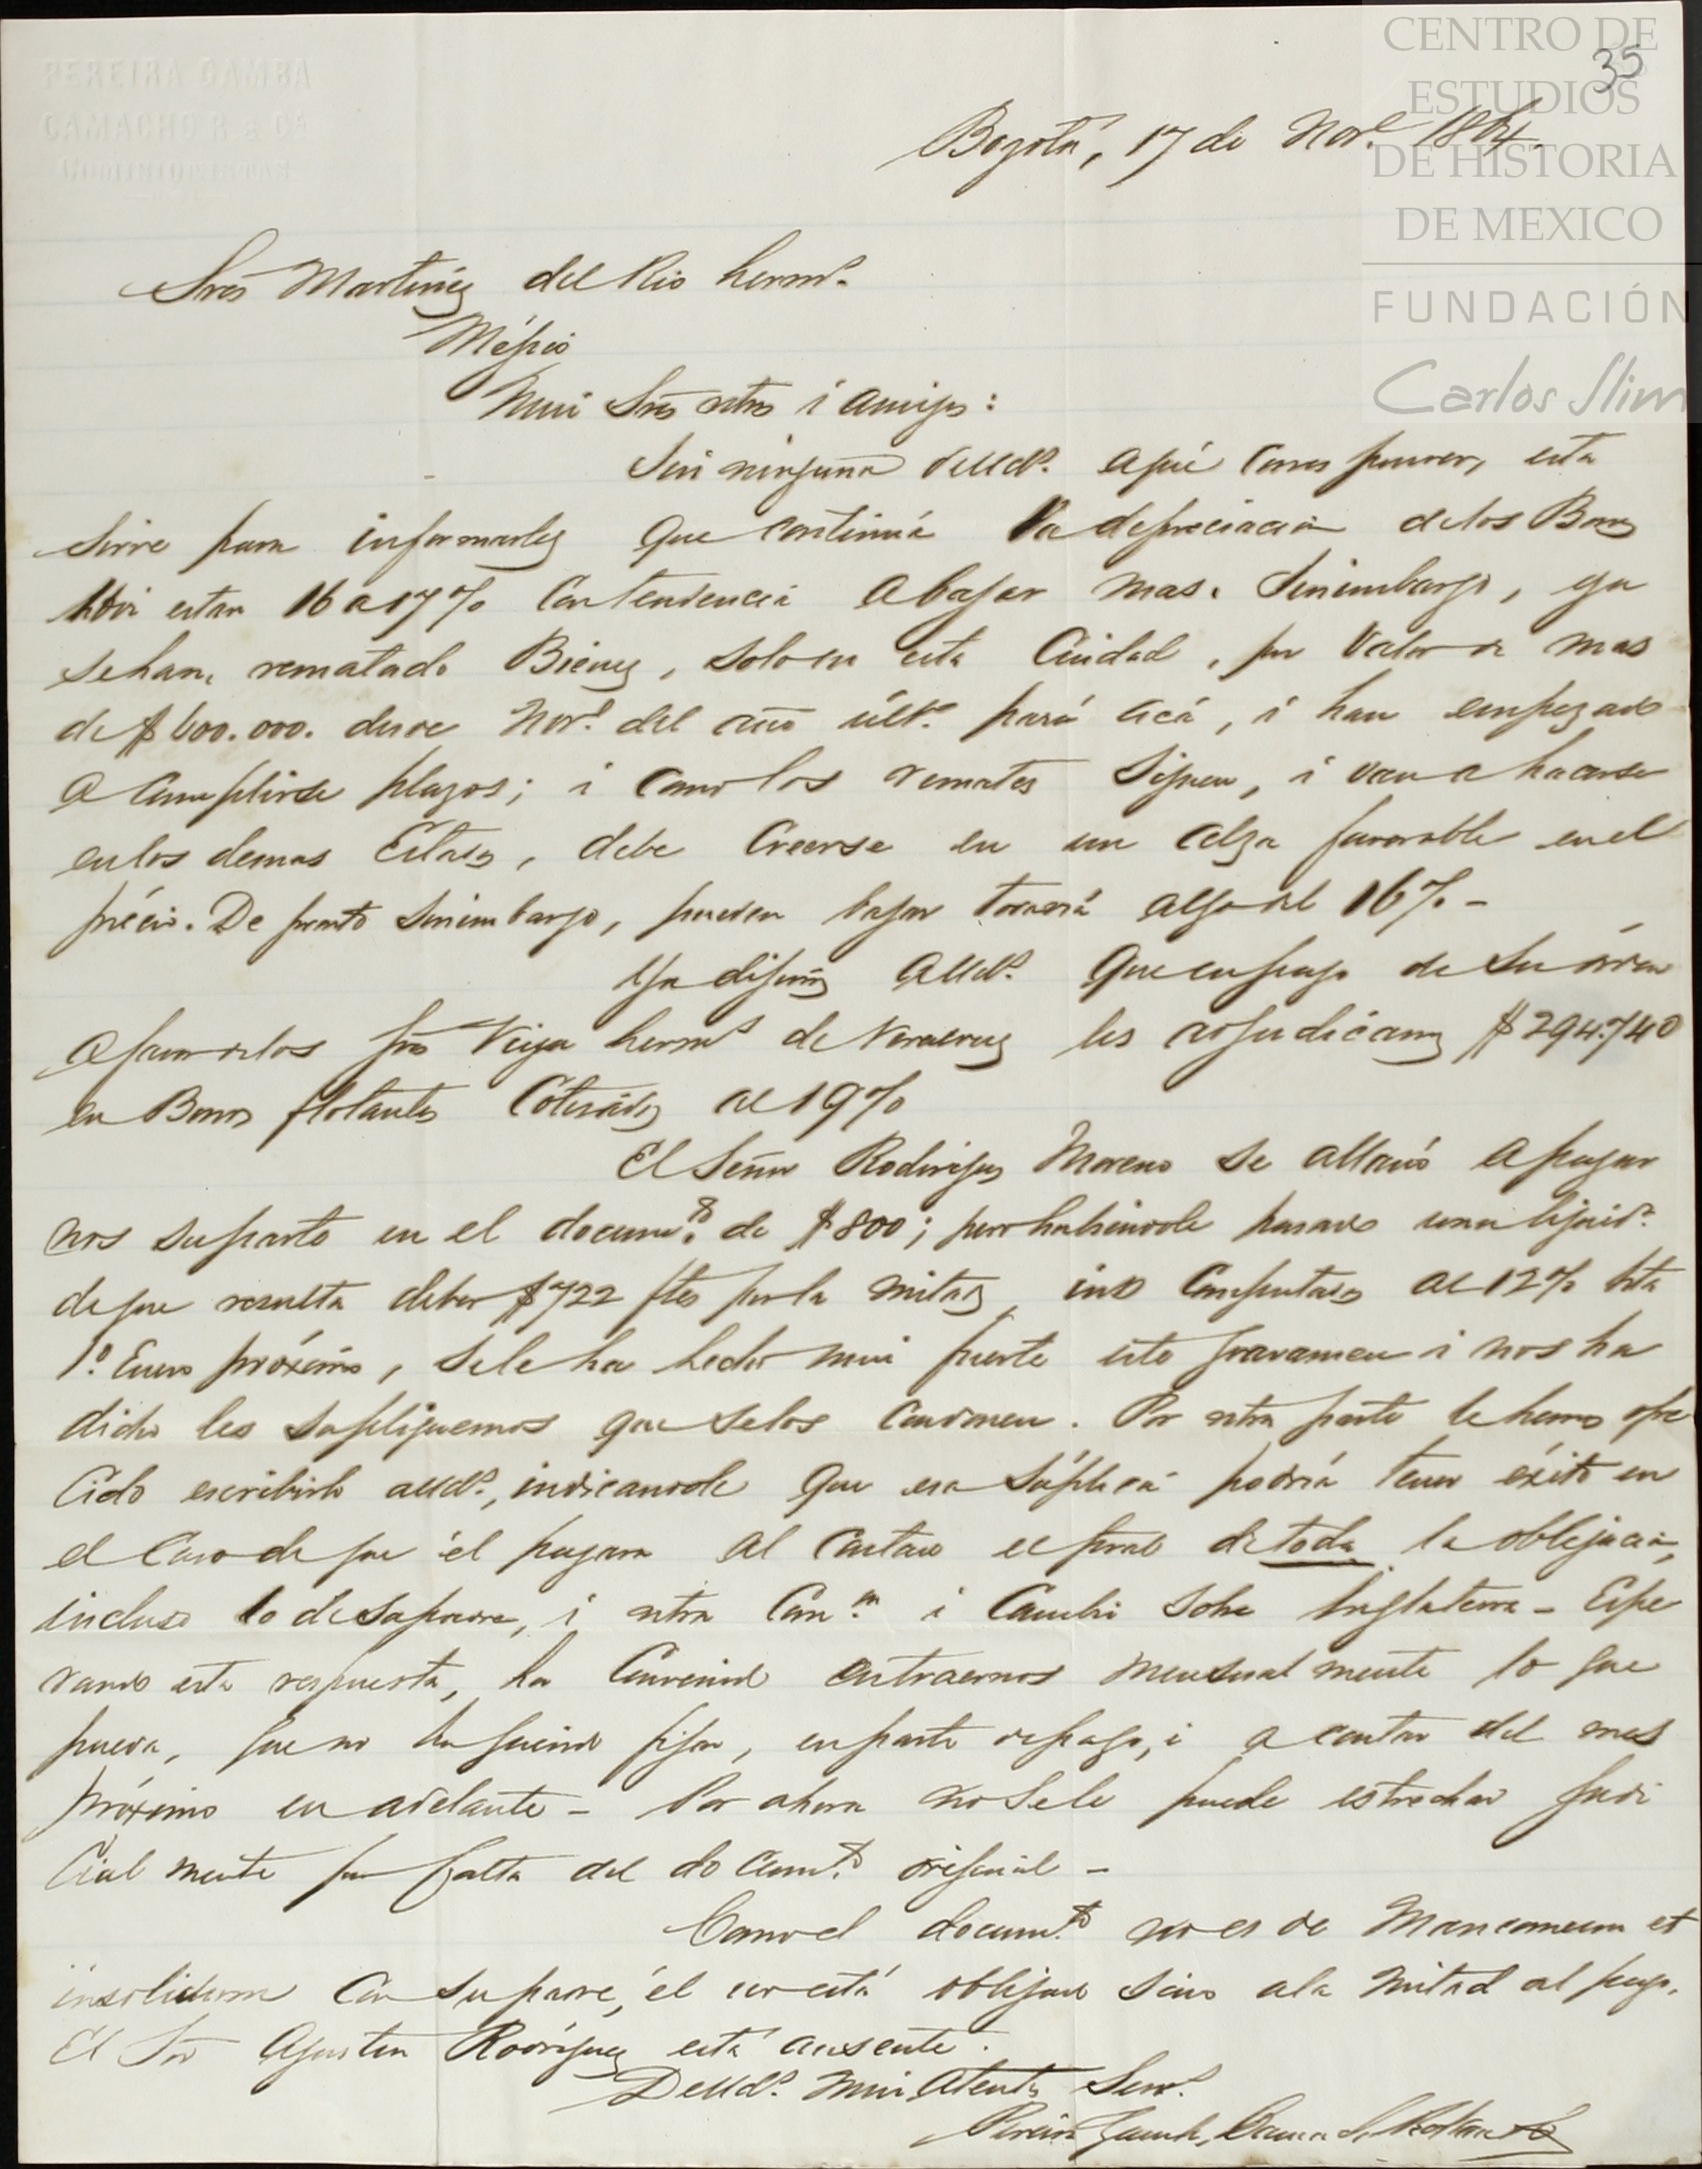 PEREIRA GAMBA
CAMACHO R. & Ca
COMISIONISTAS
CENTRO DE
ESTUDIOS
DE HISTORIA
DE MEXICO
FUNDACIÓN
Carlos Slim
35
Bogotá, 17 de Nov.e 1864.
Sres Martinez del Rio herms.
Méjico
Mui Sres ntros i amigos:
Sin ninguna de Uds. a que corresponder, esta
sirve para informarles que continúa la depreciacion de los Bonos
Hoi estan 16 a 17% con tendencia a bajar mas. Sinembargo, ya
se han rematado Bienes, solo en esta Ciudad, por valor de mas
de $600.000. desde Nov.e del año últ.o para acá, i han empezado
a cumplirse plazos; i como los remates siguen, i van a hacerse
en los demas Estados, debe creerse en un alza favorable en el
précio. De pronto sinembargo, pueden bajar todavía algo del 16%-
Ya dijimos a Uds. que en pago de su órden
a favor de los Sres Viya herms de Veracruz les adjudicamos $294.740
en Bonos flotantes cotizados al 19%
El Señor Rodriguez Moreno se allanó a pagar
nos su parte en el docum.to de $800; pero habiendole pasado una liquid.n
de que resulta deber $722 ftes por la mitad, ints computados al 12% hta
1.o Enero próximo, se le ha hecho mui fuerte este gravamen i nos ha
dicho les supliquemos que se los condonen. Por otra parte le hemos ofre
cido escribirlo a Uds., indicandole que esa súplica podria tener éxito en
el caso de que él pagara al contado el ppral de toda la obligacion,
incluso lo de su padre, i ntra Com.n i Cambio sobre Inglaterra - Espe
rando esta respuesta, ha convenido en traernos mensualmente lo que
pueda, que no ha querido fijar, en parte de pago, i a contar del mes
próximo en adelante - Por ahora no se le puede estrechar judi
cialmente por falta del docum.to orijinal -
Como el docum.to no es de Mancomun et
insolidum con su padre, él no está obligado sino a la mitad del pago.
El Sor Agustin Rodríguez está ausente.
De Uds. mui atentos Serv.s
Pereira Gamba, Camacho Roldan & Ca